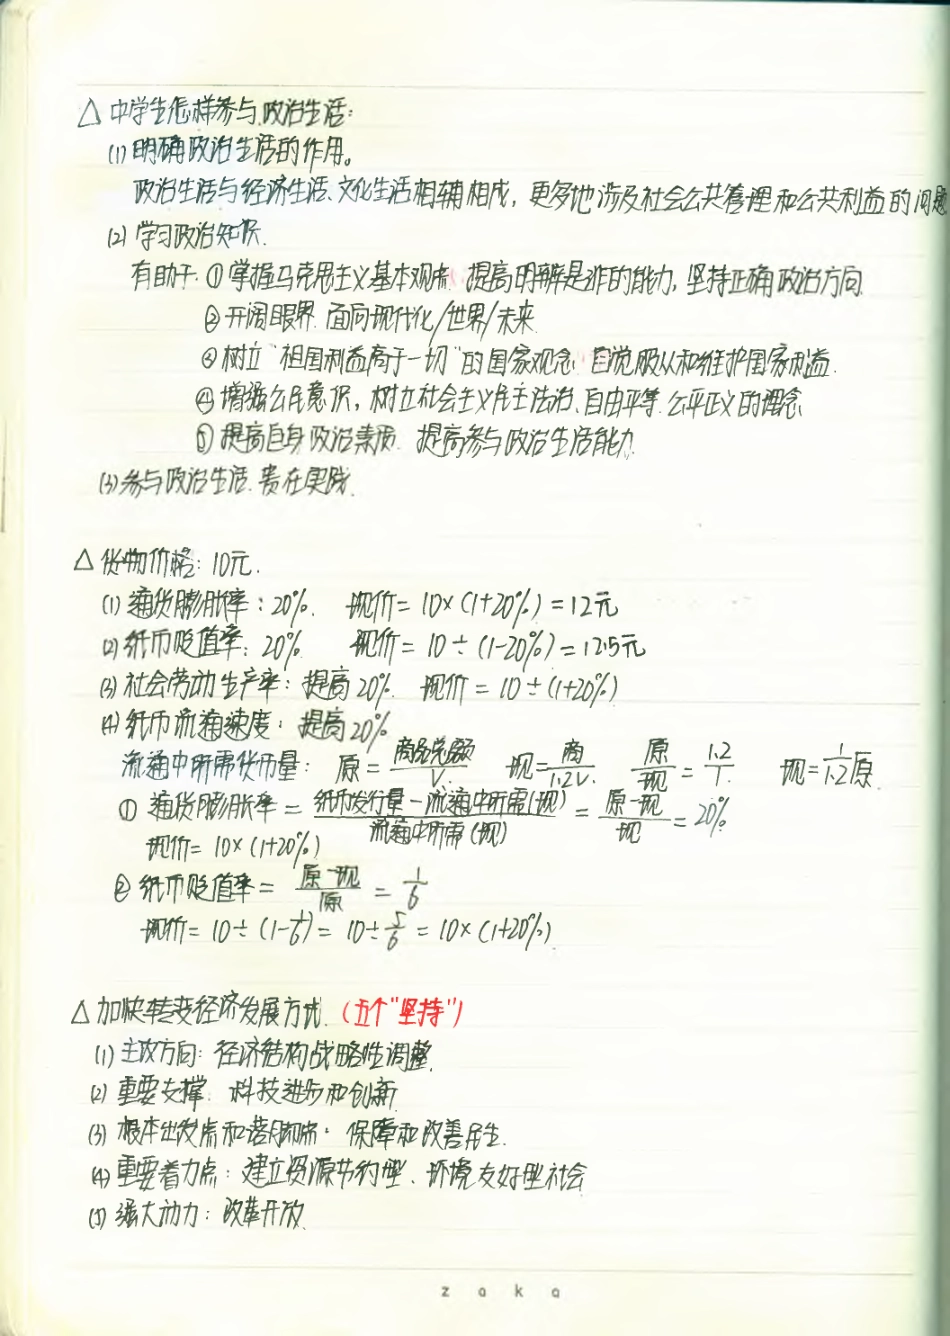 △ 中学生怎样参与政治生活:
(1) 明确政治生活的作用。
政治生活与经济生活、文化生活相辅相成，更多地涉及社会公共管理和公共利益的问题
(2) 学习政治知识.
有助于: ①掌握马克思主义基本观点 提高明辨是非的能力, 坚持正确政治方向
②开阔眼界 面向现代化/世界/未来
③树立“祖国利益高于一切”的国家观念 自觉服从和维护国家利益.
④增强公民意识, 树立社会主义民主法治、自由平等、公平正义的理念
⑤提高自身政治素质. 提高参与政治生活能力
(3) 参与政治生活. 贵在实践.
△ 货物价格: 10元.
(1) 通货膨胀率: 20%. 现价= 10×(1+20%)=12元
(2) 纸币贬值率: 20% 现价= 10÷(1-20%)=12.5元
(3) 社会劳动生产率: 提高20%. 现价= 10÷(1+20%)
(4) 纸币流通速度: 提高20%
流通中所需货币量: 原=商品总额/V. 现=商/1.2V. 原/现=1.2/1. 现=1/1.2原.
① 通货膨胀率=纸币发行量-流通中所需(现)/流通中所需(现)=原-现/现=20%
现价= 10×(1+20%)
② 纸币贬值率=原-现/原=1/6
现价= 10÷(1-1/6)=10÷5/6=10×(1+20%)
△ 加快转变经济发展方式. (五个“坚持”)
(1) 主攻方向: 经济结构战略性调整.
(2) 重要支撑: 科技进步和创新
(3) 根本出发点和落脚点: 保障和改善民生.
(4) 重要着力点: 建立资源节约型、环境友好型社会
(5) 强大动力: 改革开放.
zaka